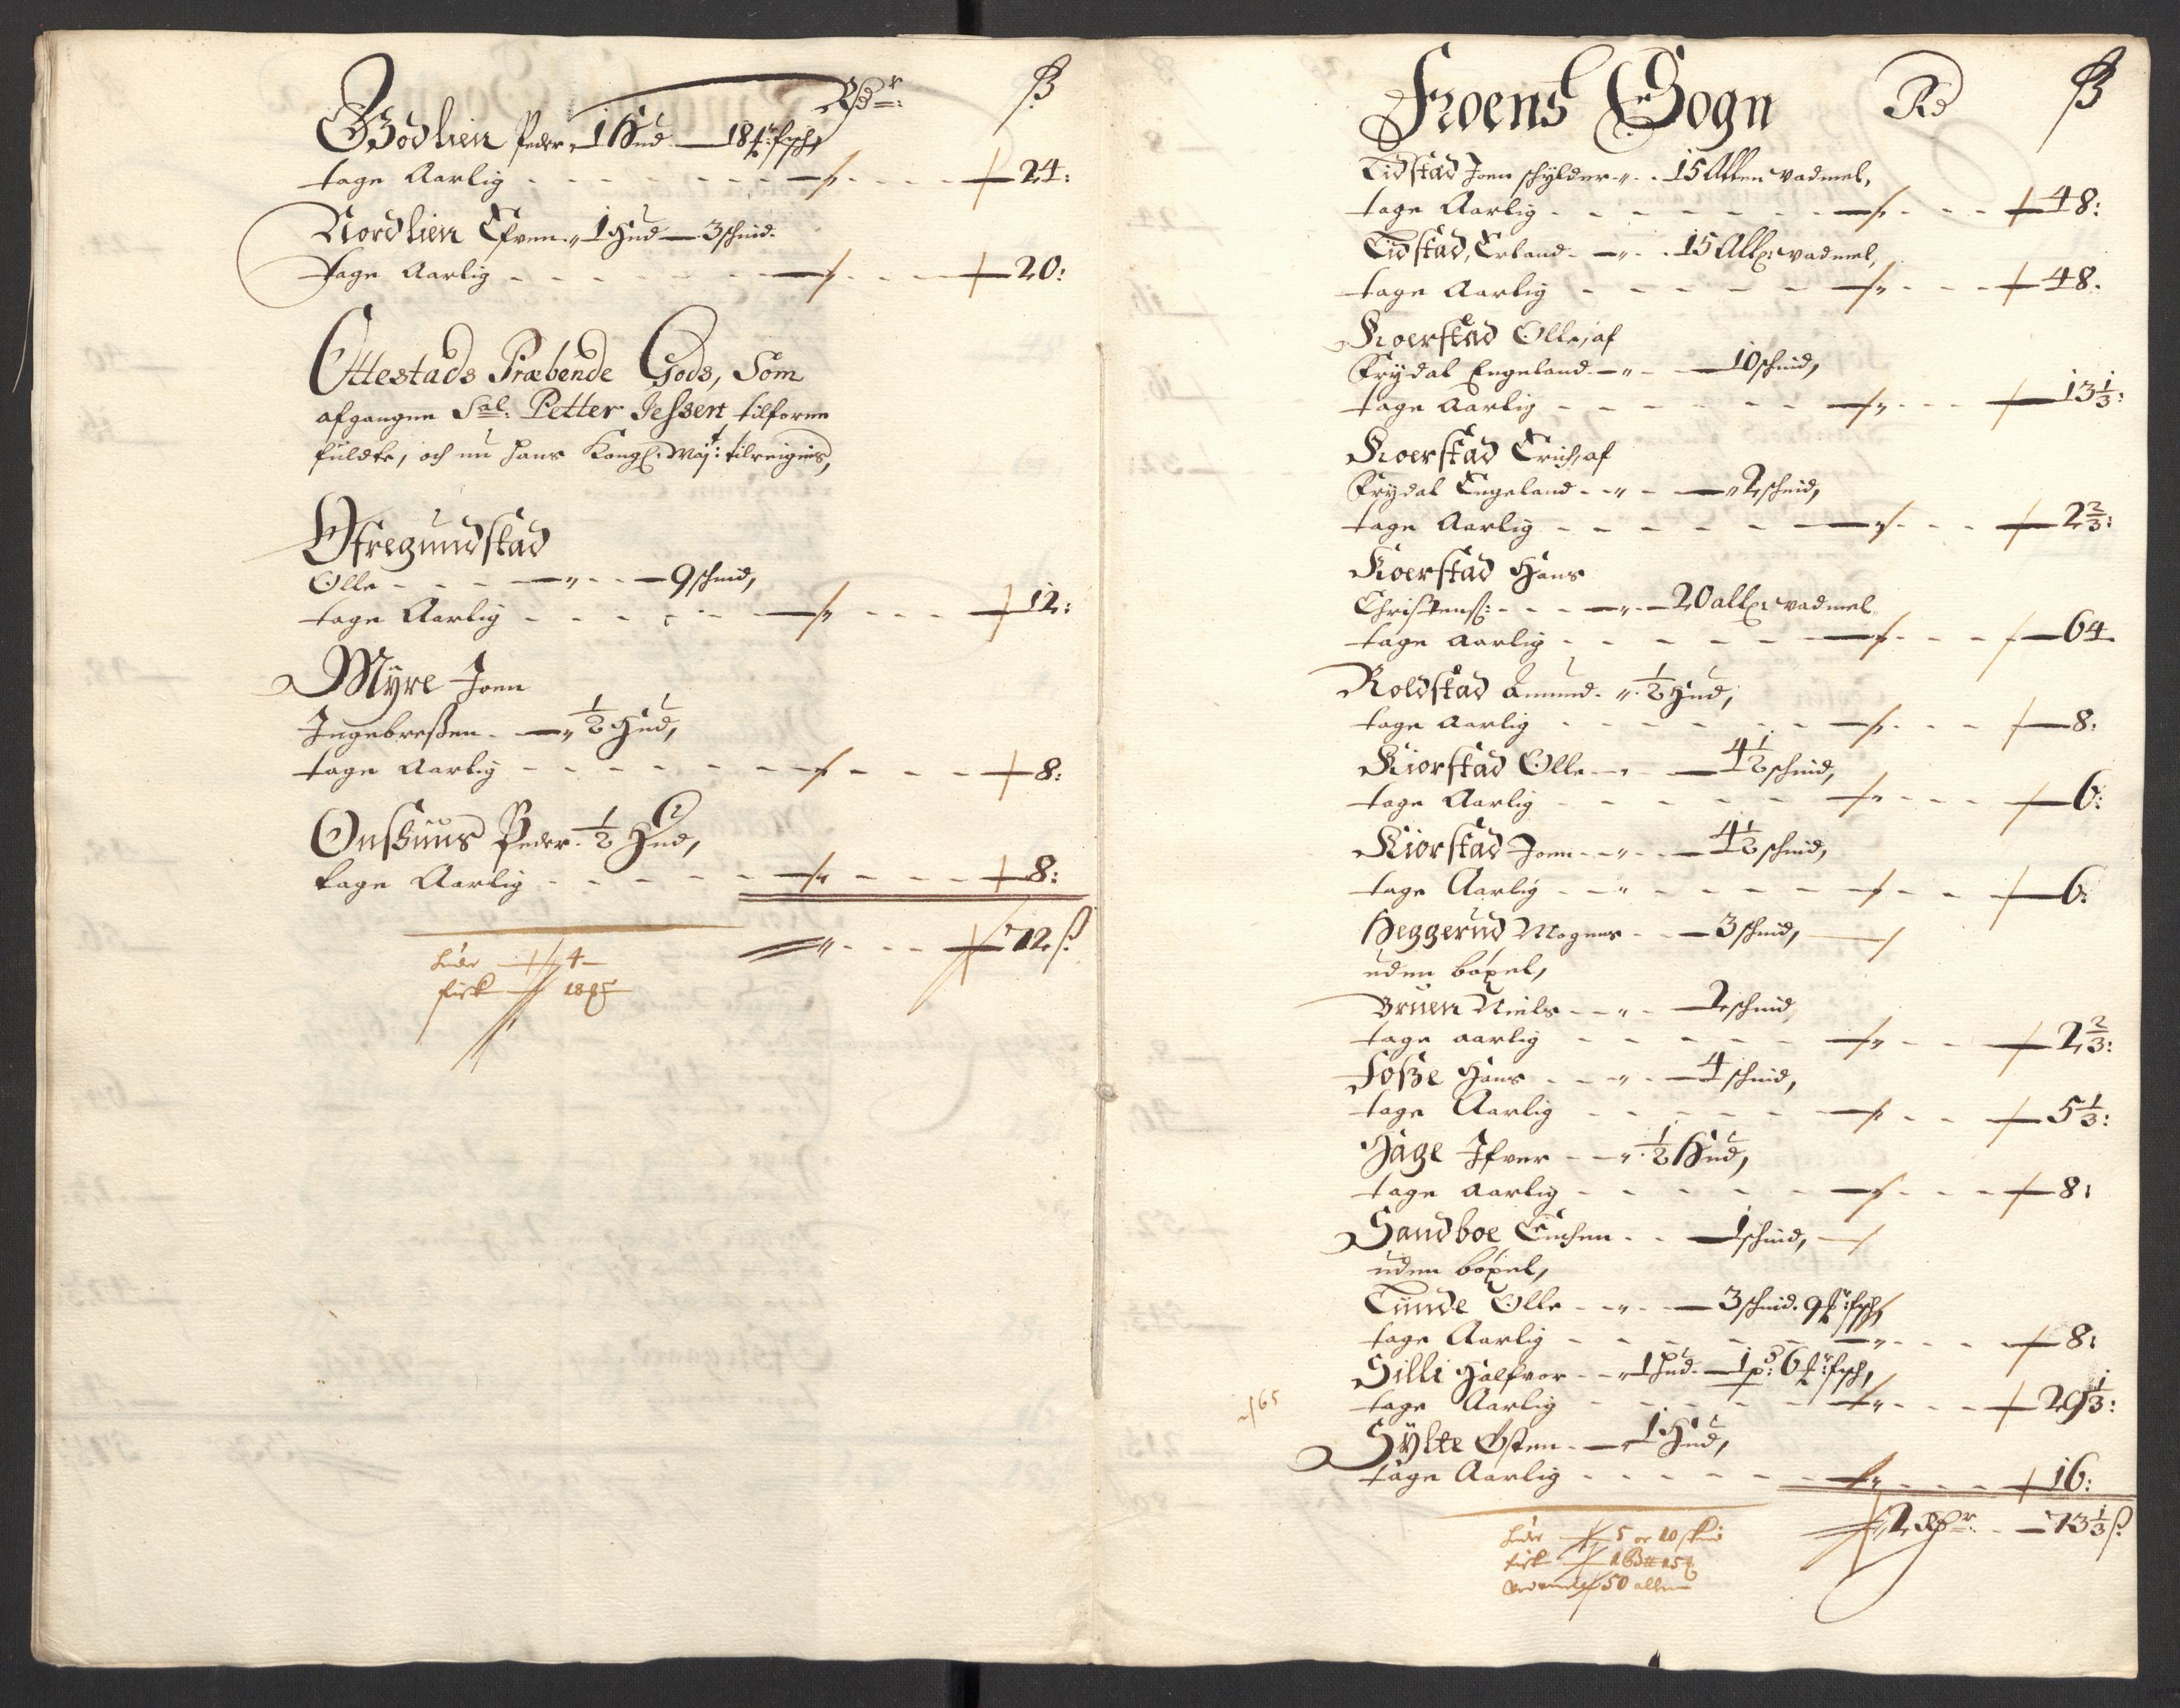 Rdr: ß
Bødlien Peder 1 Hud — 18 ℔r: fisch,
tage Aarlig - - - 24:
Nordlien Efven „ 1 Hud — 3 schind.
tage Aarlig - - - 20:
Ottestads Præbende Gods, Som
afgangne Sal: Petter Jessen tilforne
fuldte, och nu hans Kongl: Maj:t tilreignis,
Øfregundstad
Olle - - - „ - - 9 schind,
tage Aarlig - - - 12:
Myre Joen
Ingebreßen - „ ½ Hud,
tage Aarlig - - - 8:
Onsßuus Peder - ½ Hud,
tage Aarlig - - - 8:
„ - - - 72 ß.
huder 4
fisk 18 ℔
Froens Sogn Rd ß
Tidstad Joen schylder „ - 15 Allen vadmel,
tage Aarlig - - - 48:
Tidstad, Erland - „ - 15 All: vadmel,
tage Aarlig - - - 48.
Koerstad Olle, af
Frydal Engeland „ - 10 schind,
tage Aarlig - - - 13⅓:
Koerstad Erich, af
Frydal Engeland - „ - 2 schind,
tage Aarlig - - - 2⅔:
Koerstad Hans
Christenß: - - „ - 20 all: vadmel
tage Aarlig - - - 64.
Roldstad Amund - „ ½ Hud,
tage Aarlig - - - 8:
Kiorstad Olle - „ - 4½ schind,
tage Aarlig - - - 6:
Kiorstad Joen - „ - 4½ schind,
tage Aarlig - „ - - 6:
Heggerud Mogens - - 3 schind,
uden bøxel,
Bruen Niels - „ - 2 schind,
tage aarlig - - - 2⅔:
Foße Hans - „ - 4 schind,
tage Aarlig - - - 5⅓:
Hage Ifver - „ ½ Hud,
tage Aarlig - - - 8:
Sandboe - - 1 schind,
uden bøxel,
Tunde Olle - „ - 3 schind. 9 ℔r: fisch,
tage Aarlig - - - 8:
Silli Halfvor - „ 1 hud - 1 p: 6 ℔r: fisch,
tage Aarlig - - - 29⅓:
Sylte Østen - „ 1 Hud,
tage Aarlig - - - 16:
2 Rdr: - 73⅓ ß.
huder 5 or 10 skind
fisk 1 15 ℔
vadmel 50 allen